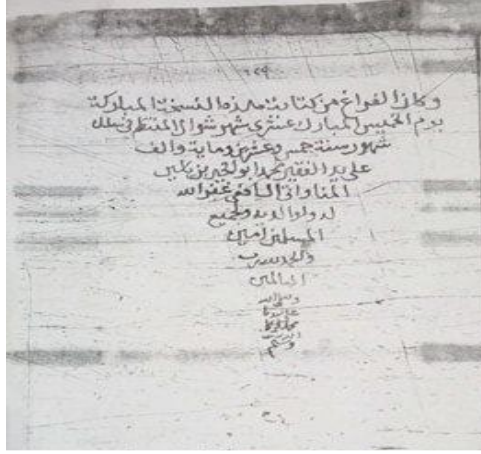 ١٢٩
وكان الفراغ من كتابة هذه النسخة المباركة
يوم الخميس المبارك عشري شهر شوال المنتظم في سلك
شهور سنة خمس وعشرين وماية والف
على يد الفقير محمد ابو الخير بن
الشافعي غفر الله
له ولوالديه ولجميع
المسلمين امين
والحمد لله رب
العالمين
وصلى الله
على سيدنا
محمد
وسلم